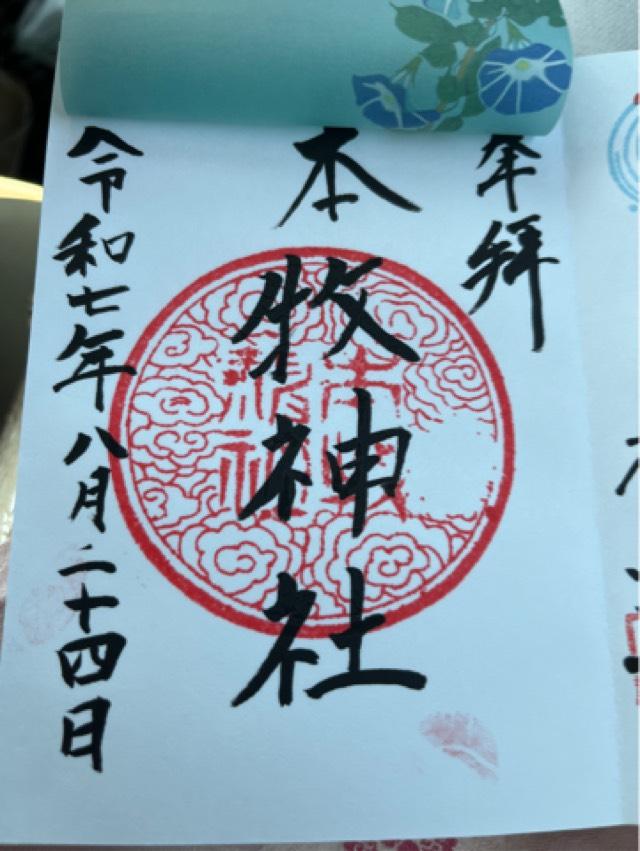 奉拝
本牧神社
令和七年八月二十四日